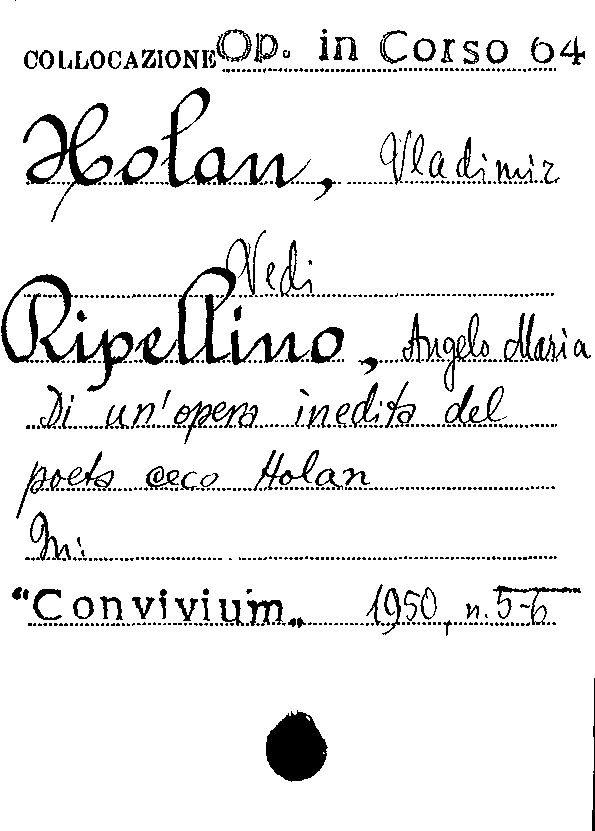 COLLOCAZIONE Op. in Corso 64
Holan, Vladimir
Vedi
Ripellino, Angelo Maria
Di un'opera inedita del
poeta ceco Holan
In:
"Convivium„ 1950, n. 5-6